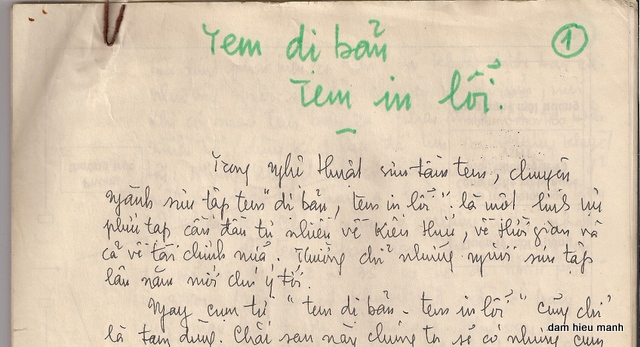 Tem dị bản
①
Tem in lỗi.
Trong nghệ thuật sưu tầm tem, chuyên
ngành sưu tập tem "dị bản, tem in lỗi" là một lĩnh vực
phức tạp cần đầu tư nhiều về kiến thức, về thời gian và
cả về tài chính nữa. Thường chỉ những người sưu tập
lâu năm mới chú ý tới.
Ngay cụm từ "tem dị bản - tem in lỗi" cũng chỉ
là tạm dùng. Chắc sau này chúng ta sẽ có những cụm
dam hieu manh